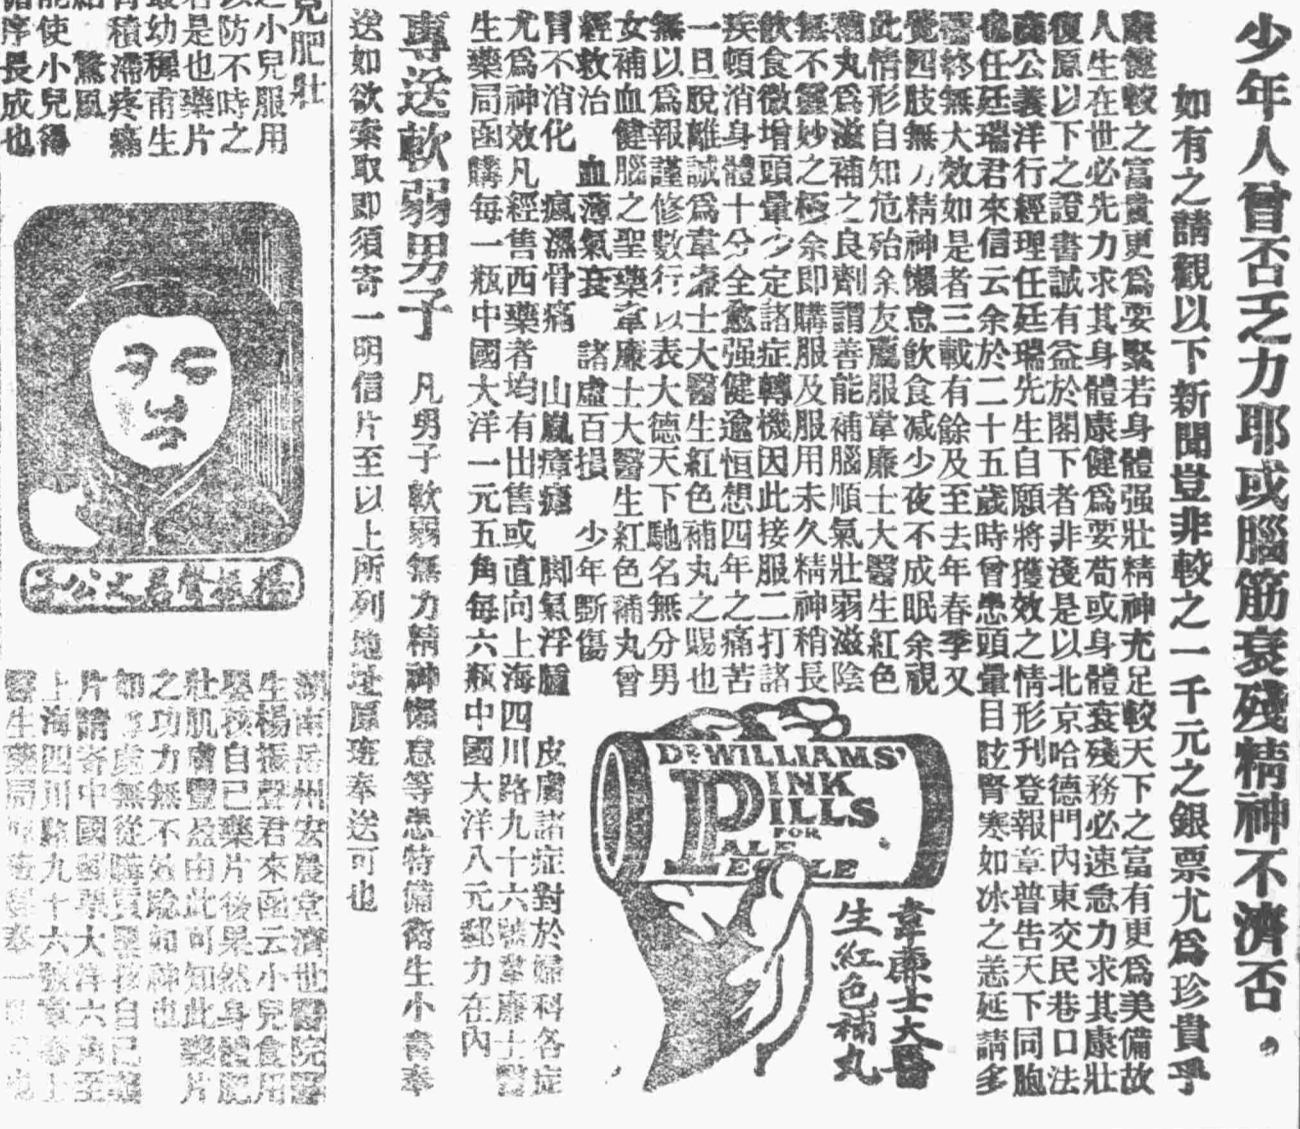 少年人曾否乏力耶或腦筋衰殘精神不濟否。
如有之請觀以下新聞豈非較之一千元之銀票尤爲珍貴乎
康健較之富貴更爲要緊若身體强壯精神充足較天下之富有更爲美備故
人生在世必先力求其身體康健爲要苟或身體衰殘務必速急力求其康壯
復原以下之證書誠有益於閣下者非淺是以北京哈德門內東交民巷口法
商公義洋行經理任廷瑞先生自願將獲效之情形刊登報章普告天下同胞
也任廷瑞君來信云余於二十五歲時曾患頭暈目眩腎寒如冰之恙延請多
醫終無大效如是者三載有餘及至去年春季又
覺四肢無力精神懶怠飲食减少夜不成眠余視
此情形自知危殆余友薦服韋廉士大醫生紅色
補丸爲滋補之良劑謂善能補腦順氣壯弱滋陰
無不靈妙之極余即購服及服用未久精神稍長
飲食微增頭暈少定諸症轉機因此接服二打諸
疾頓消身體十分全愈强健逾恒想四年之痛苦
一旦脫離誠爲韋廉士大醫生紅色補丸之賜也
無以爲報謹修數行以表大德天下馳名無分男
女補血健腦之聖藥韋廉士大醫生紅色補丸曾
經救治 血薄氣衰 諸虛百損 少年斷傷
胃不消化 瘋濕骨痛 山嵐瘴瘧 脚氣浮腫 皮膚諸症對於婦科各症
尤爲神效凡經售西藥者均有出售或直向上海四川路九十六號韋廉士醫
生藥局函購每一瓶中國大洋一元五角每六瓶中國大洋八元郵力在內
DR. WILLIAMS'
PINK
PILLS
FOR
PALE
PEOPLE
韋廉士大醫
生紅色補丸
專送軟弱男子 凡男子軟弱無力精神懶怠等恙特備衛生小書奉
送如欲索取即須寄一明信片至以上所列地址原班奉送可也
兒肥壯
之小兒服用
以防不時之
若是也藥片
最幼穉甫生
胃積滯疼痛
驚風
能使小兒得
循序長成也
楊振聲君之公子
湖南岳州宏農堂濟世醫院醫
生楊振聲君來函云小兒食用
嬰孩自己藥片後果然身體肥
壯肌膚豐盈由此可知此藥片
之功力無不效驗如神也
如 無從購買嬰孩自己藥
片請寄中國國幣大洋六角至
上海四川路九十六號韋廉士
醫生藥局 奉一